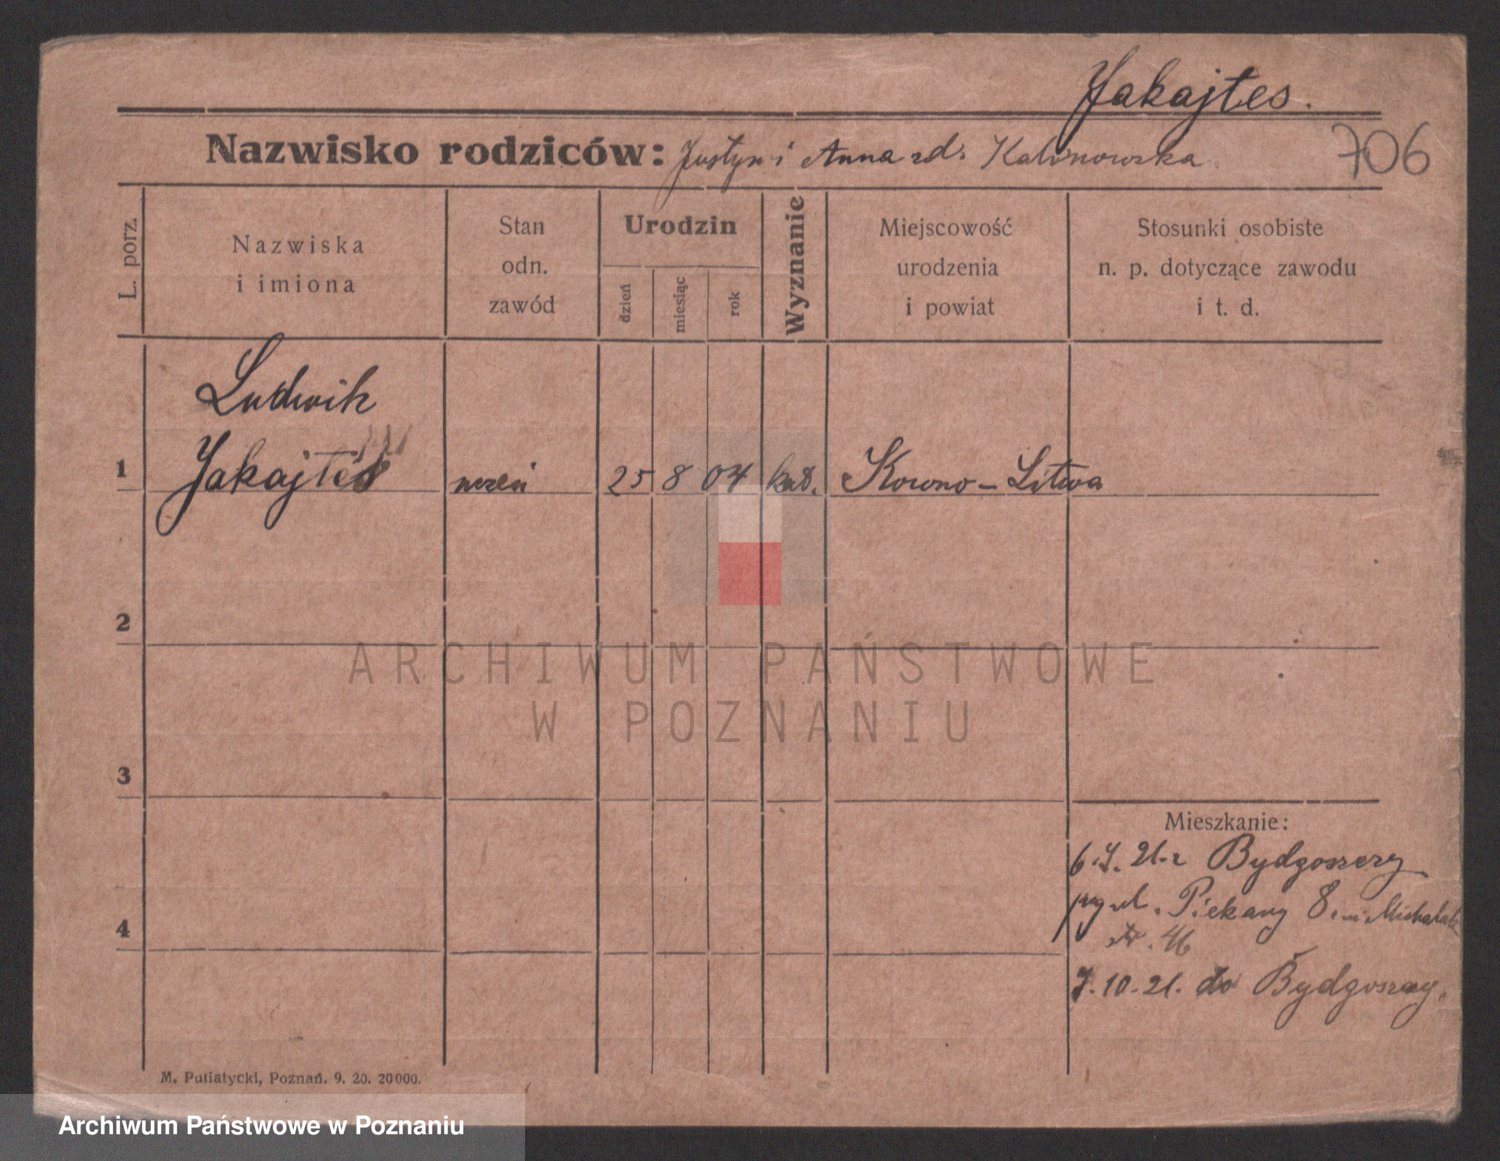 Jakajtes.
Nazwisko rodziców: Justyn i Anna zd. Kalinowska
706
L. porz.
Nazwiska
i imiona
Stan
odn.
zawód
Urodzin
dzień
miesiąc
rok
Wyznanie
Miejscowość
urodzenia
i powiat
Stosunki osobiste
n. p. dotyczące zawodu
i t. d.
Ludwik
1 Jakajtes uczeń 25 8 04 kat. Kowno - Litwa
2
ARCHIWUM PAŃSTWOWE
W POZNANIU
3
Mieszkanie:
6.7.21. z Bydgoszczy
Piekary 8.
str. 46
4
7.10.21. do Bydgoszczy.
M. Putiatycki, Poznań. 9. 20. 20000.
Archiwum Państwowe w Poznaniu